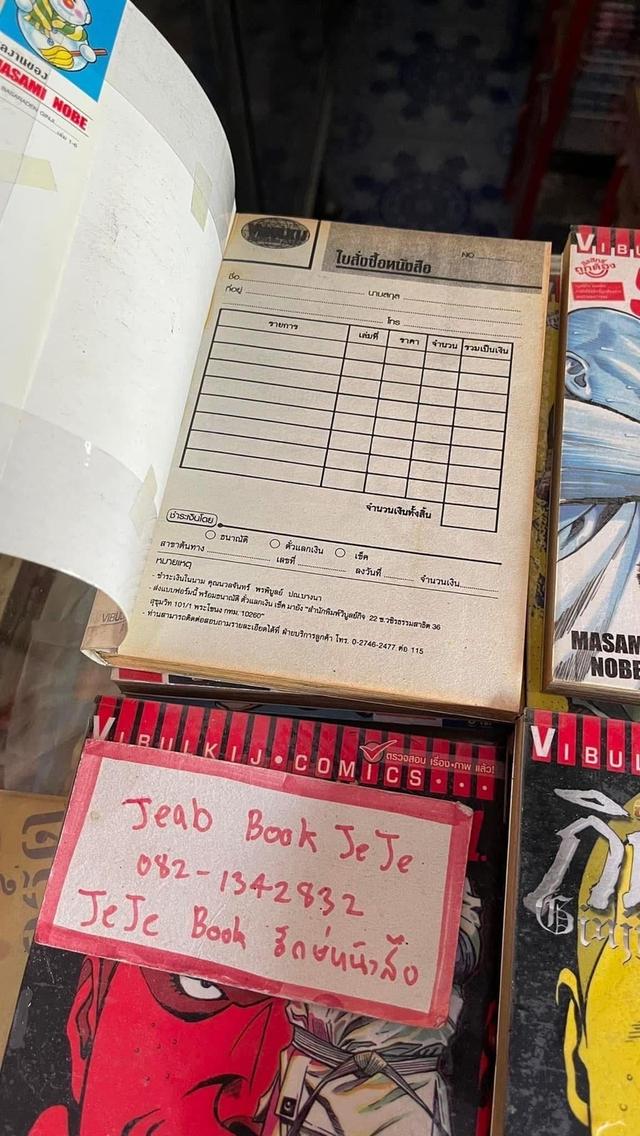 ผลงานของ
MASAMI NOBE
ใบสั่งซื้อหนังสือ
NO
ชื่อ นามสกุล
ที่อยู่
โทร
รายการ เล่มที่ ราคา จำนวน รวมเป็นเงิน
จำนวนเงินทั้งสิ้น
ชำระเงินโดย
ธนาณัติ ตั๋วแลกเงิน เช็ค
สาขาต้นทาง เลขที่ ลงวันที่ จำนวนเงิน
หมายเหตุ
- ชำระเงินในนาม คุณนวลจันทร์ พรพิบูลย์ ปณ.บางนา
- ส่งแบบฟอร์มนี้ พร้อมธนาณัติ ตั๋วแลกเงิน เช็ค มายัง "สำนักพิมพ์วิบูลย์กิจ 22 ซ.วชิรธรรมสาธิต 36
สุขุมวิท 101/1 พระโขนง กทม. 10260"
- ท่านสามารถติดต่อสอบถามรายละเอียดได้ที่ ฝ่ายบริการลูกค้า โทร. 0-2746-2477 ต่อ 115
VIBU
ถูกต้อง
MASAM
NOBE
VIBULKIJ•COMICS•••
ตรวจสอบ เรื่อง•ภาพ แล้ว!
Jeab Book JeJe
082-1342832
JeJe Book รักษ์หนังสือ
VIBUL